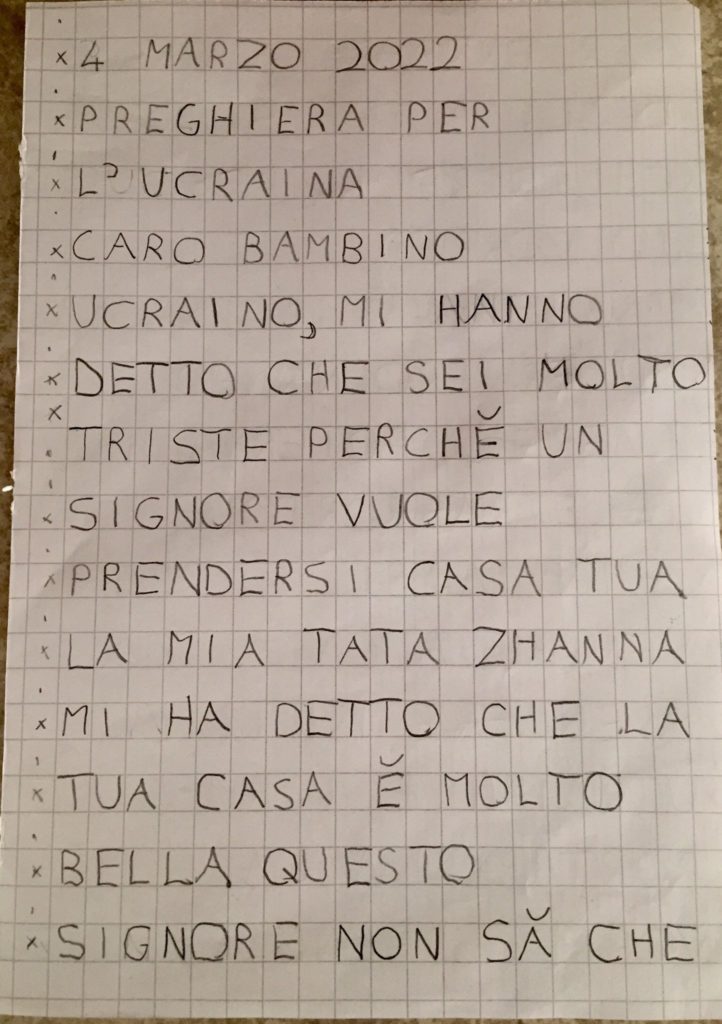 4 MARZO 2022
PREGHIERA PER
L'UCRAINA
CARO BAMBINO
UCRAINO, MI HANNO
DETTO CHE SEI MOLTO
TRISTE PERCHĔ UN
SIGNORE VUOLE
PRENDERSI CASA TUA
LA MIA TATA ZHANNA
MI HA DETTO CHE LA
TUA CASA Ĕ MOLTO
BELLA QUESTO
SIGNORE NON SĂ CHE